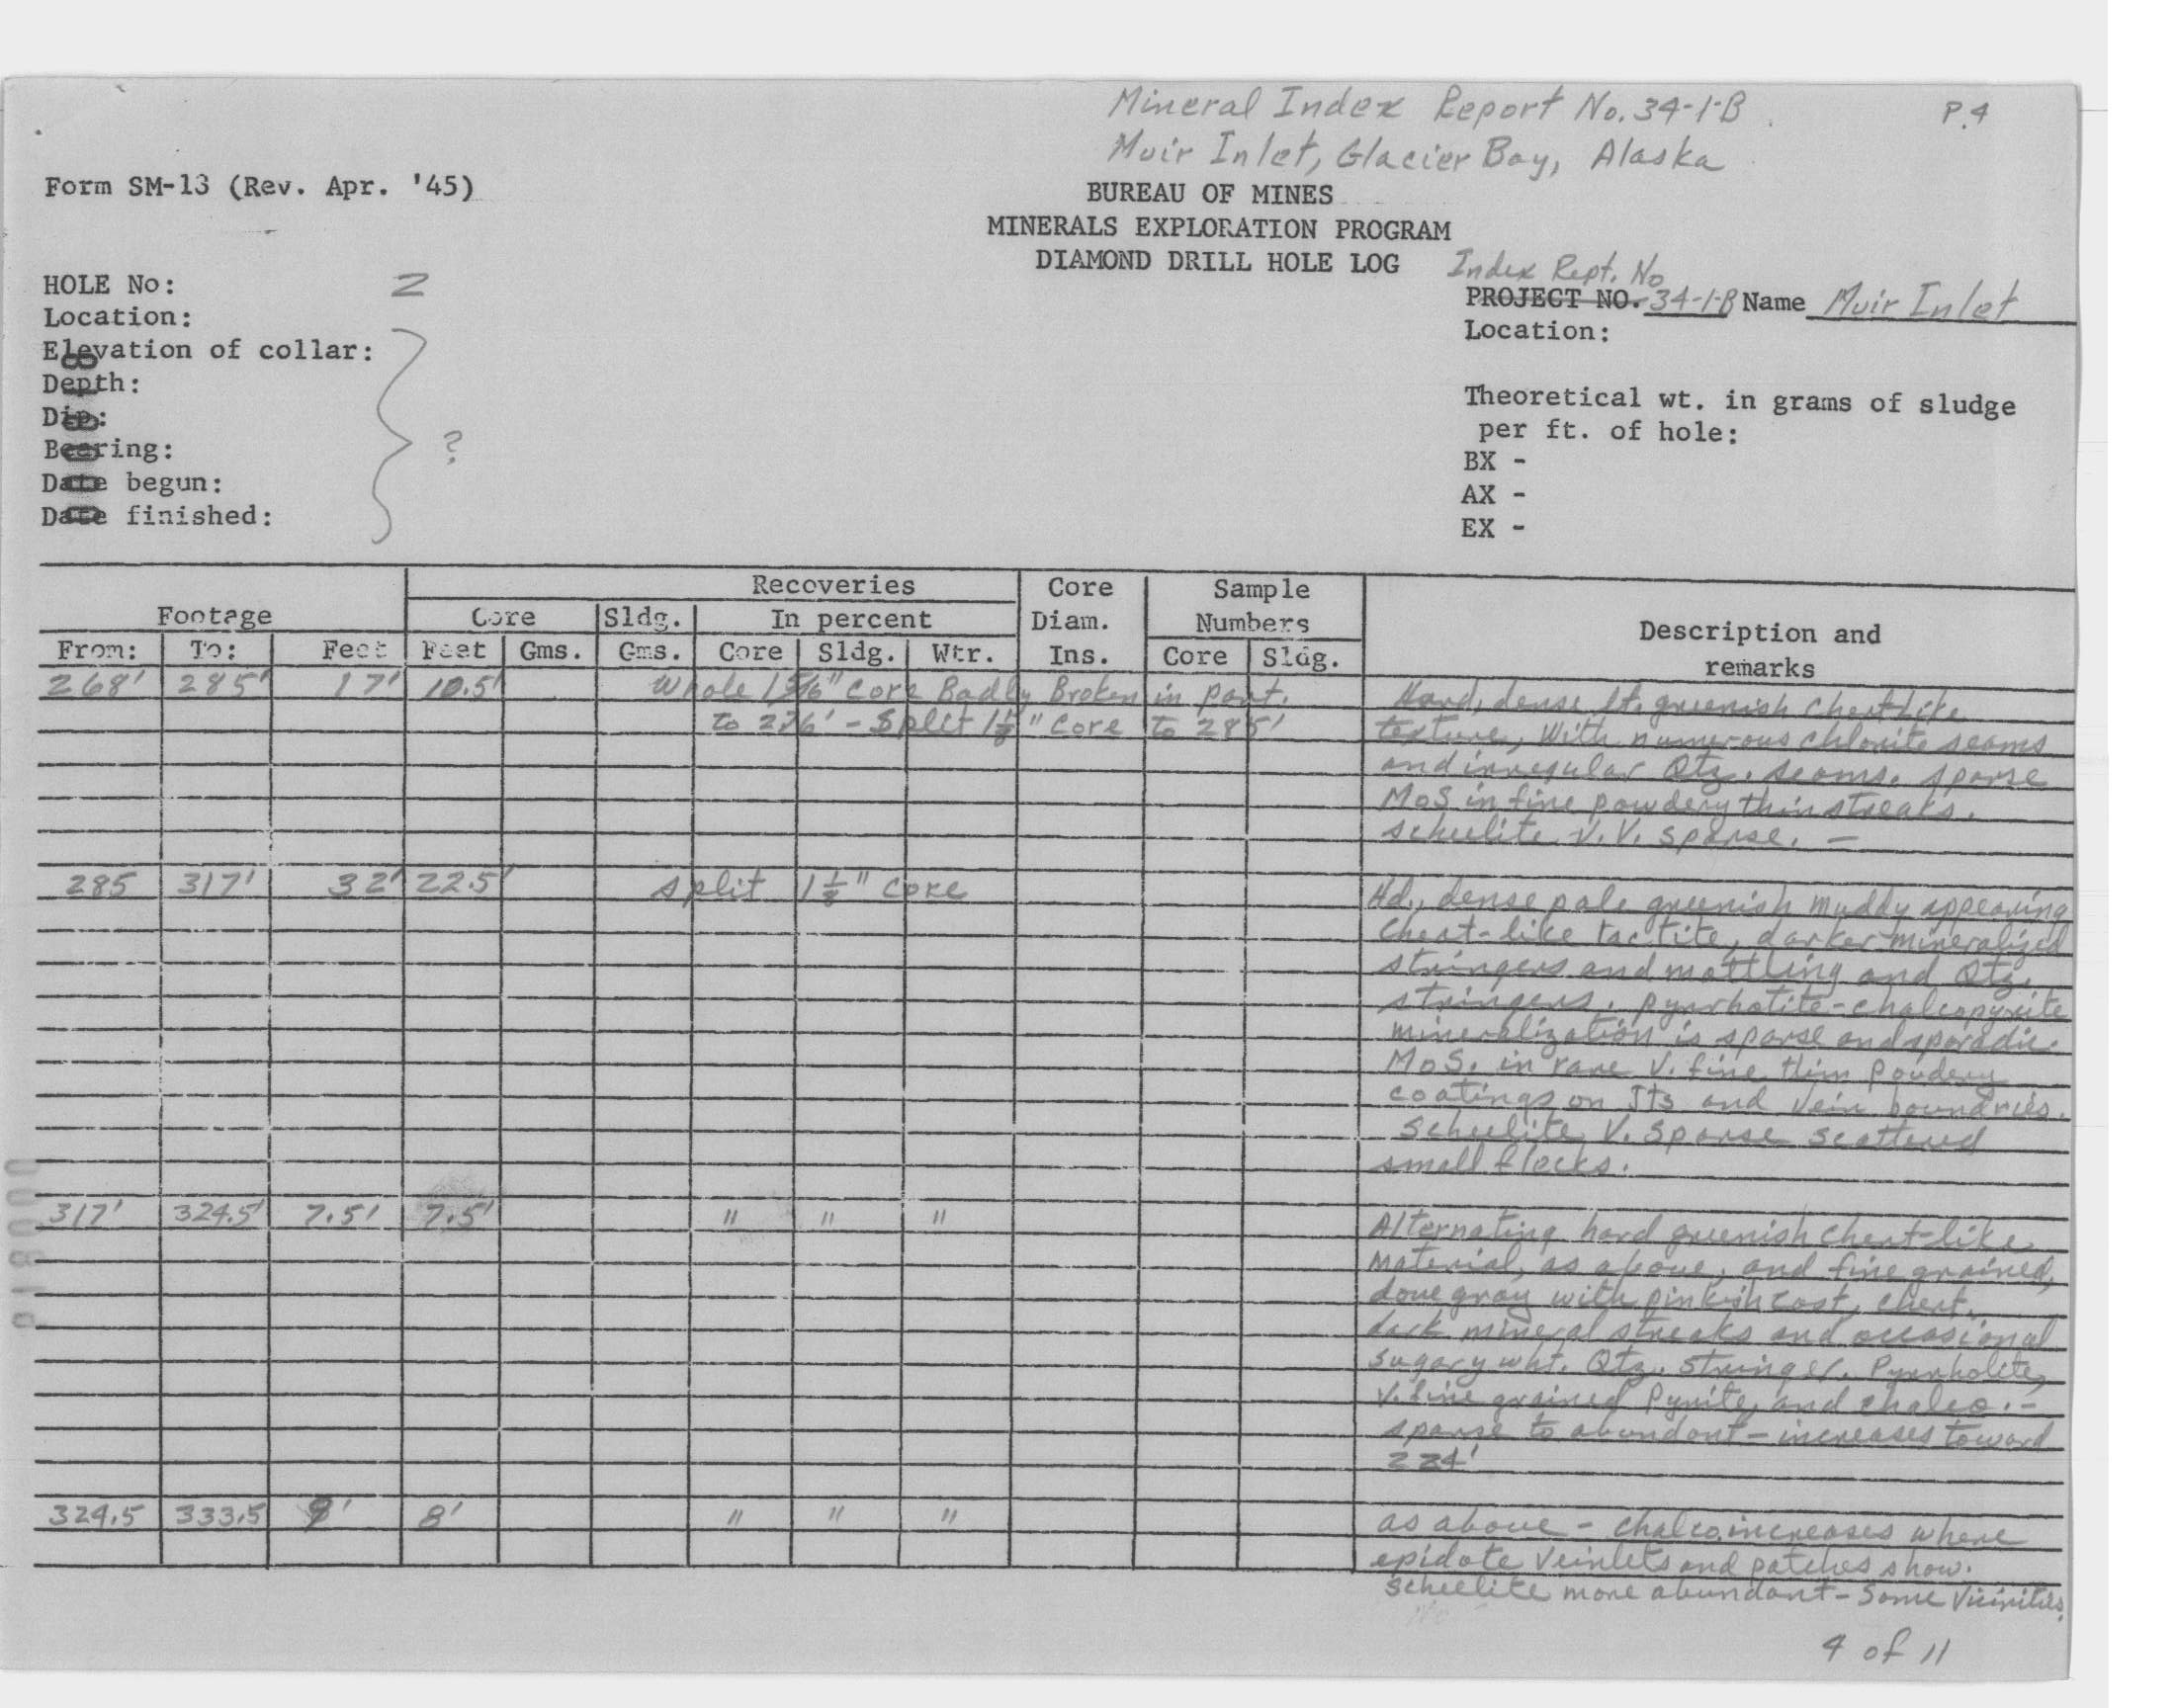 Mineral Index Report No. 34-1-B
P.4
Muir Inlet, Glacier Bay, Alaska
Form SM-13 (Rev. Apr. '45)
BUREAU OF MINES
MINERALS EXPLORATION PROGRAM
DIAMOND DRILL HOLE LOG
Index Rept. No
HOLE No: 2
PROJECT NO. 34-1-B Name Muir Inlet
Location:
Location:
Elevation of collar:
Depth:
Dip:
Bearing:
Date begun:
Date finished:
?
Theoretical wt. in grams of sludge
per ft. of hole:
BX -
AX -
EX -
Footage Recoveries Core Diam. Ins. Sample Numbers Description and remarks
Core Sldg. In percent
From: To: Feet Feet Gms. Gms. Core Sldg. Wtr. Core Sldg.
268' 285' 17' 10.5' Whole 1 5/16" Core Badly Broken in part. Hard, dense lt. greenish chert-like
to 276' - Split 1 1/8" core to 285' texture, With numerous chlorite seams
and irregular Qtz. seams. sparse
MoS in fine powdery thin streaks.
scheelite V.V. sparse. -
285 317' 32' 22.5' split 1 1/8" core Hd., dense pale greenish muddy appearing
Chert-like tactite, darker mineralized
stringers and mottling and Qtz.
stringers. pyrrhotite-chalcopyrite
mineralization is sparse and sporadic.
MoS. in rare V. fine thin powdery
coatings on Jts and vein boundries.
Scheelite V. Sparse scattered
small flecks.
317' 324.5' 7.5' 7.5' " " " Alternating hard greenish chert-like
material, as above, and fine grained,
dove gray with pinkish cast, chert.
dark mineral streaks and occasional
sugary wht. Qtz. stringer. Pyrrhotite,
V. fine grained Pyrite, and chalco. -
sparse to abundant - increases toward
224'
324.5 333.5 9' 8' " " " as above - chalco. increases where
epidote veinlets and patches show.
Scheelite more abundant - Some Vicinities.
4 of 11